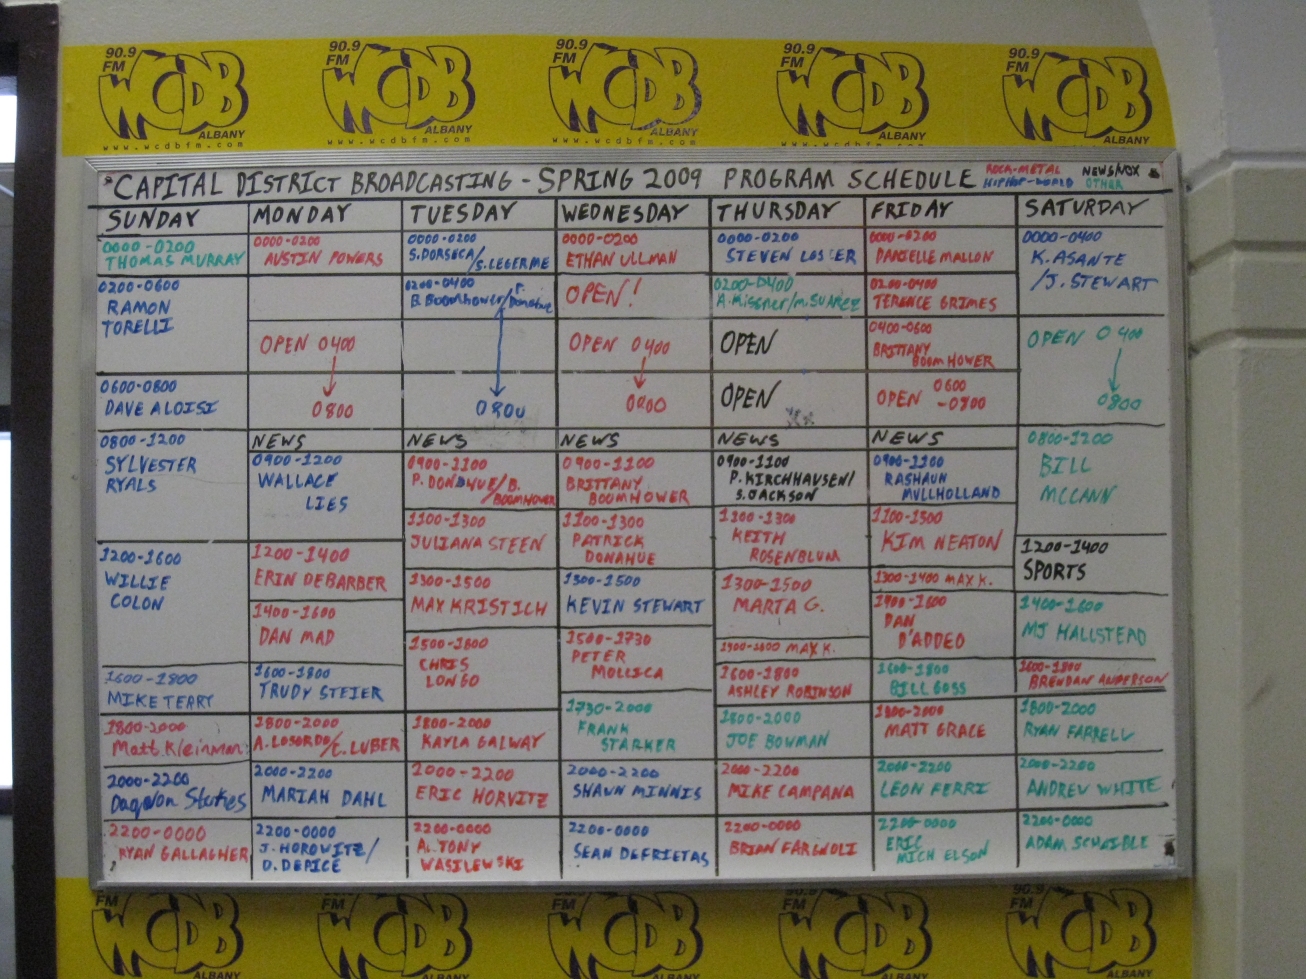 90.9 FM WCDB ALBANY
www.wcdbfm.com
90.9 FM WCDB ALBANY
www.wcdbfm.com
90.9 FM WCDB ALBANY
www.wcdbfm.com
90.9 FM WCDB ALBANY
www.wcdbfm.com
90.9 FM WCDB ALBANY
www.wcdbfm.com
CAPITAL DISTRICT BROADCASTING - SPRING 2009 PROGRAM SCHEDULE
ROCK-METAL NEWS/VOX
HIPHOP-WORLD OTHER
SUNDAY
0000-0200
THOMAS MURRAY
0200-0600
RAMON
TORELLI
0600-0800
DAVE ALOISI
0800-1200
SYLVESTER
RYALS
1200-1600
WILLIE
COLON
1600-1800
MIKE TERRY
1800-2000
Matt Kleinman
2000-2200
Daqwon Stukes
2200-0000
RYAN GALLAGHER
MONDAY
0000-0200
AUSTIN POWERS
OPEN 0400
0800
NEWS
0900-1200
WALLACE
LIES
1200-1400
ERIN DEBARBER
1400-1600
DAN MAD
1600-1800
TRUDY STEIER
1800-2000
A. LOSORDO/C. LUBER
2000-2200
MARIAH DAHL
2200-0000
J. HOROWITZ/
D. DEPICE
TUESDAY
0000-0200
S. DORSECA
/S. LEGERME
0200-0400
B. Boomhower/P.
Donahue
0800
NEWS
0900-1100
P. DONAHUE/B.
BOOMHOWER
1100-1300
JULIANA STEEN
1300-1500
MAX KRISTICH
1500-1800
CHRIS
LONGO
1800-2000
KAYLA GALWAY
2000-2200
ERIC HORVITZ
2200-0000
A. TONY
WASILEWSKI
WEDNESDAY
0000-0200
ETHAN ULLMAN
OPEN!
OPEN 0400
0800
NEWS
0900-1100
BRITTANY
BOOMHOWER
1100-1300
PATRICK
DONAHUE
1300-1500
KEVIN STEWART
1500-1730
PETER
MOLLICA
1730-2000
FRANK
STARKER
2000-2200
SHAWN MINNIS
2200-0000
SEAN DEFRIETAS
THURSDAY
0000-0200
STEVEN
0200-0400
A. Missner/M. SUAREZ
OPEN
OPEN
NEWS
0900-1100
P. KIRCHHAUSEN/
S. JACKSON
1100-1300
KEITH
ROSENBLUM
1300-1500
MARTA G.
1500-1600 MAX K.
1600-1800
ASHLEY ROBINSON
1800-2000
JOE BOWMAN
2000-2200
MIKE CAMPANA
2200-0000
BRIAN FARGNOLI
FRIDAY
0000-0200
DANIELLE MALLON
0200-0400
TERENCE GRIMES
0400-0600
BRITTANY
BOOMHOWER
OPEN 0600
-0800
NEWS
0900-1100
RASHAUN
MULLHOLLAND
1100-1300
KIM NEATON
1300-1400 MAX K.
1400-1600
DAN
D'ADDEO
1600-1800
BILL GOSS
1800-2000
MATT GRACE
2000-2200
LEON FERRI
2200-0000
ERIC
MICHELSON
SATURDAY
0000-0400
K. ASANTE
/J. STEWART
OPEN 0400
0800
0800-1200
BILL
MCCANN
1200-1400
SPORTS
1400-1600
MJ HALLSTEAD
1600-1800
BRENDAN ANDERSON
1800-2000
RYAN FARRELL
2000-2200
ANDREW WHITE
2200-0000
ADAM SCHAIBLE
90.9 FM WCDB ALBANY
90.9 FM WCDB ALBANY
90.9 FM WCDB ALBANY
90.9 FM WCDB ALBANY
90.9 FM WCDB ALBANY